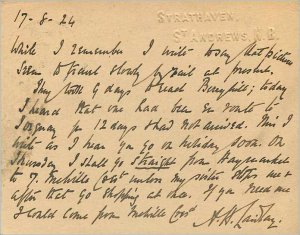 17-8-24
STRATHAVEN,
ST ANDREWS, N.B.
While I remember I write to say that
seem to travel slowly by mail at present.
They took 9 days to reach ; today
I heard that one had been en route to
for 12 days & had not arrived. This I
write as I hear you go on holiday soon. On
Thursday I shall go straight from Haymarket
to 7. Melville Cres^t unless my sister stops me &
after that go shopping at once. If you need me
I could come from Melville Cres^t